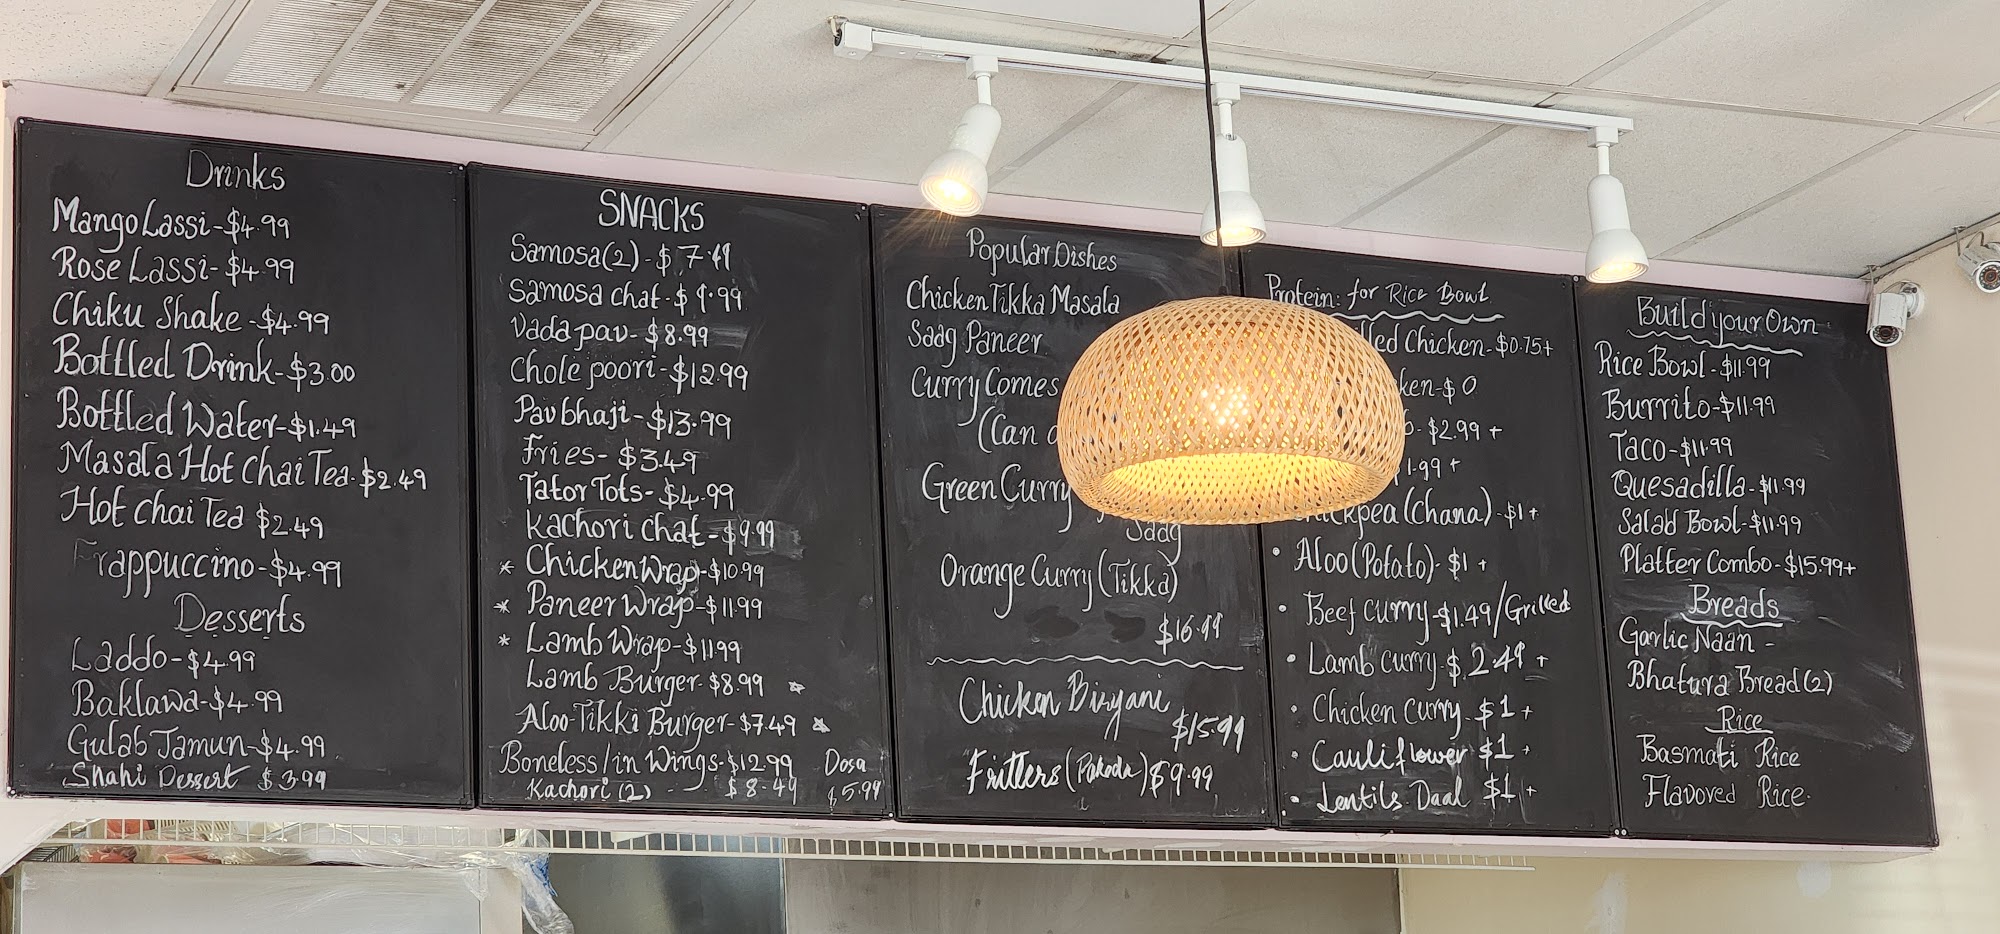 Drinks
Mango Lassi-$4.99
Rose Lassi-$4.99
Chiku Shake-$4.99
Bottled Drink-$3.00
Bottled Water-$1.49
Masala Hot Chai Tea-$2.49
Hot chai Tea $2.49
Frappuccino-$4.99
Desserts
Laddo-$4.99
Baklawa-$4.99
Gulab Jamun-$4.99
Shahi Dessert $3.99
SNACKS
Samosa(2)-$7.49
Samosa chat-$9.99
Vada pav-$8.99
Chole poori-$12.99
Pav bhaji-$13.99
Fries-$3.49
Tator Tots-$4.99
Kachori chat-$9.99
* Chicken Wrap-$10.99
* Paneer Wrap-$11.99
* Lamb Wrap-$11.99
Lamb Burger-$8.99 *
Aloo Tikki Burger-$7.49 *
Boneless/in Wings-$12.99
Kachori (2) - $8.49
Dosa
$5.99
Popular Dishes
Chicken Tikka Masala
Saag Paneer
Curry Comes
(Can
Green Curry
Saag
Orange Curry (Tikka)
$16.99
Chicken Biryani
$15.99
Fritters (Pakoda) $9.99
Protein: for Rice Bowl
Chicken-$0.75+
-$0
-$2.99+
1.99+
(Chana)-$1+
• Aloo (Potato)-$1+
• Beef curry-$1.49/Grilled
• Lamb curry-$2.49+
• Chicken curry-$1+
• Cauliflower $1+
• Lentils Daal $1+
Build your Own
Rice Bowl-$11.99
Burrito-$11.99
Taco-$11.99
Quesadilla-$11.99
Salad Bowl-$11.99
Platter Combo-$15.99+
Breads
Garlic Naan-
Bhatura Bread(2)
Rice
Basmati Rice
Flavored Rice.